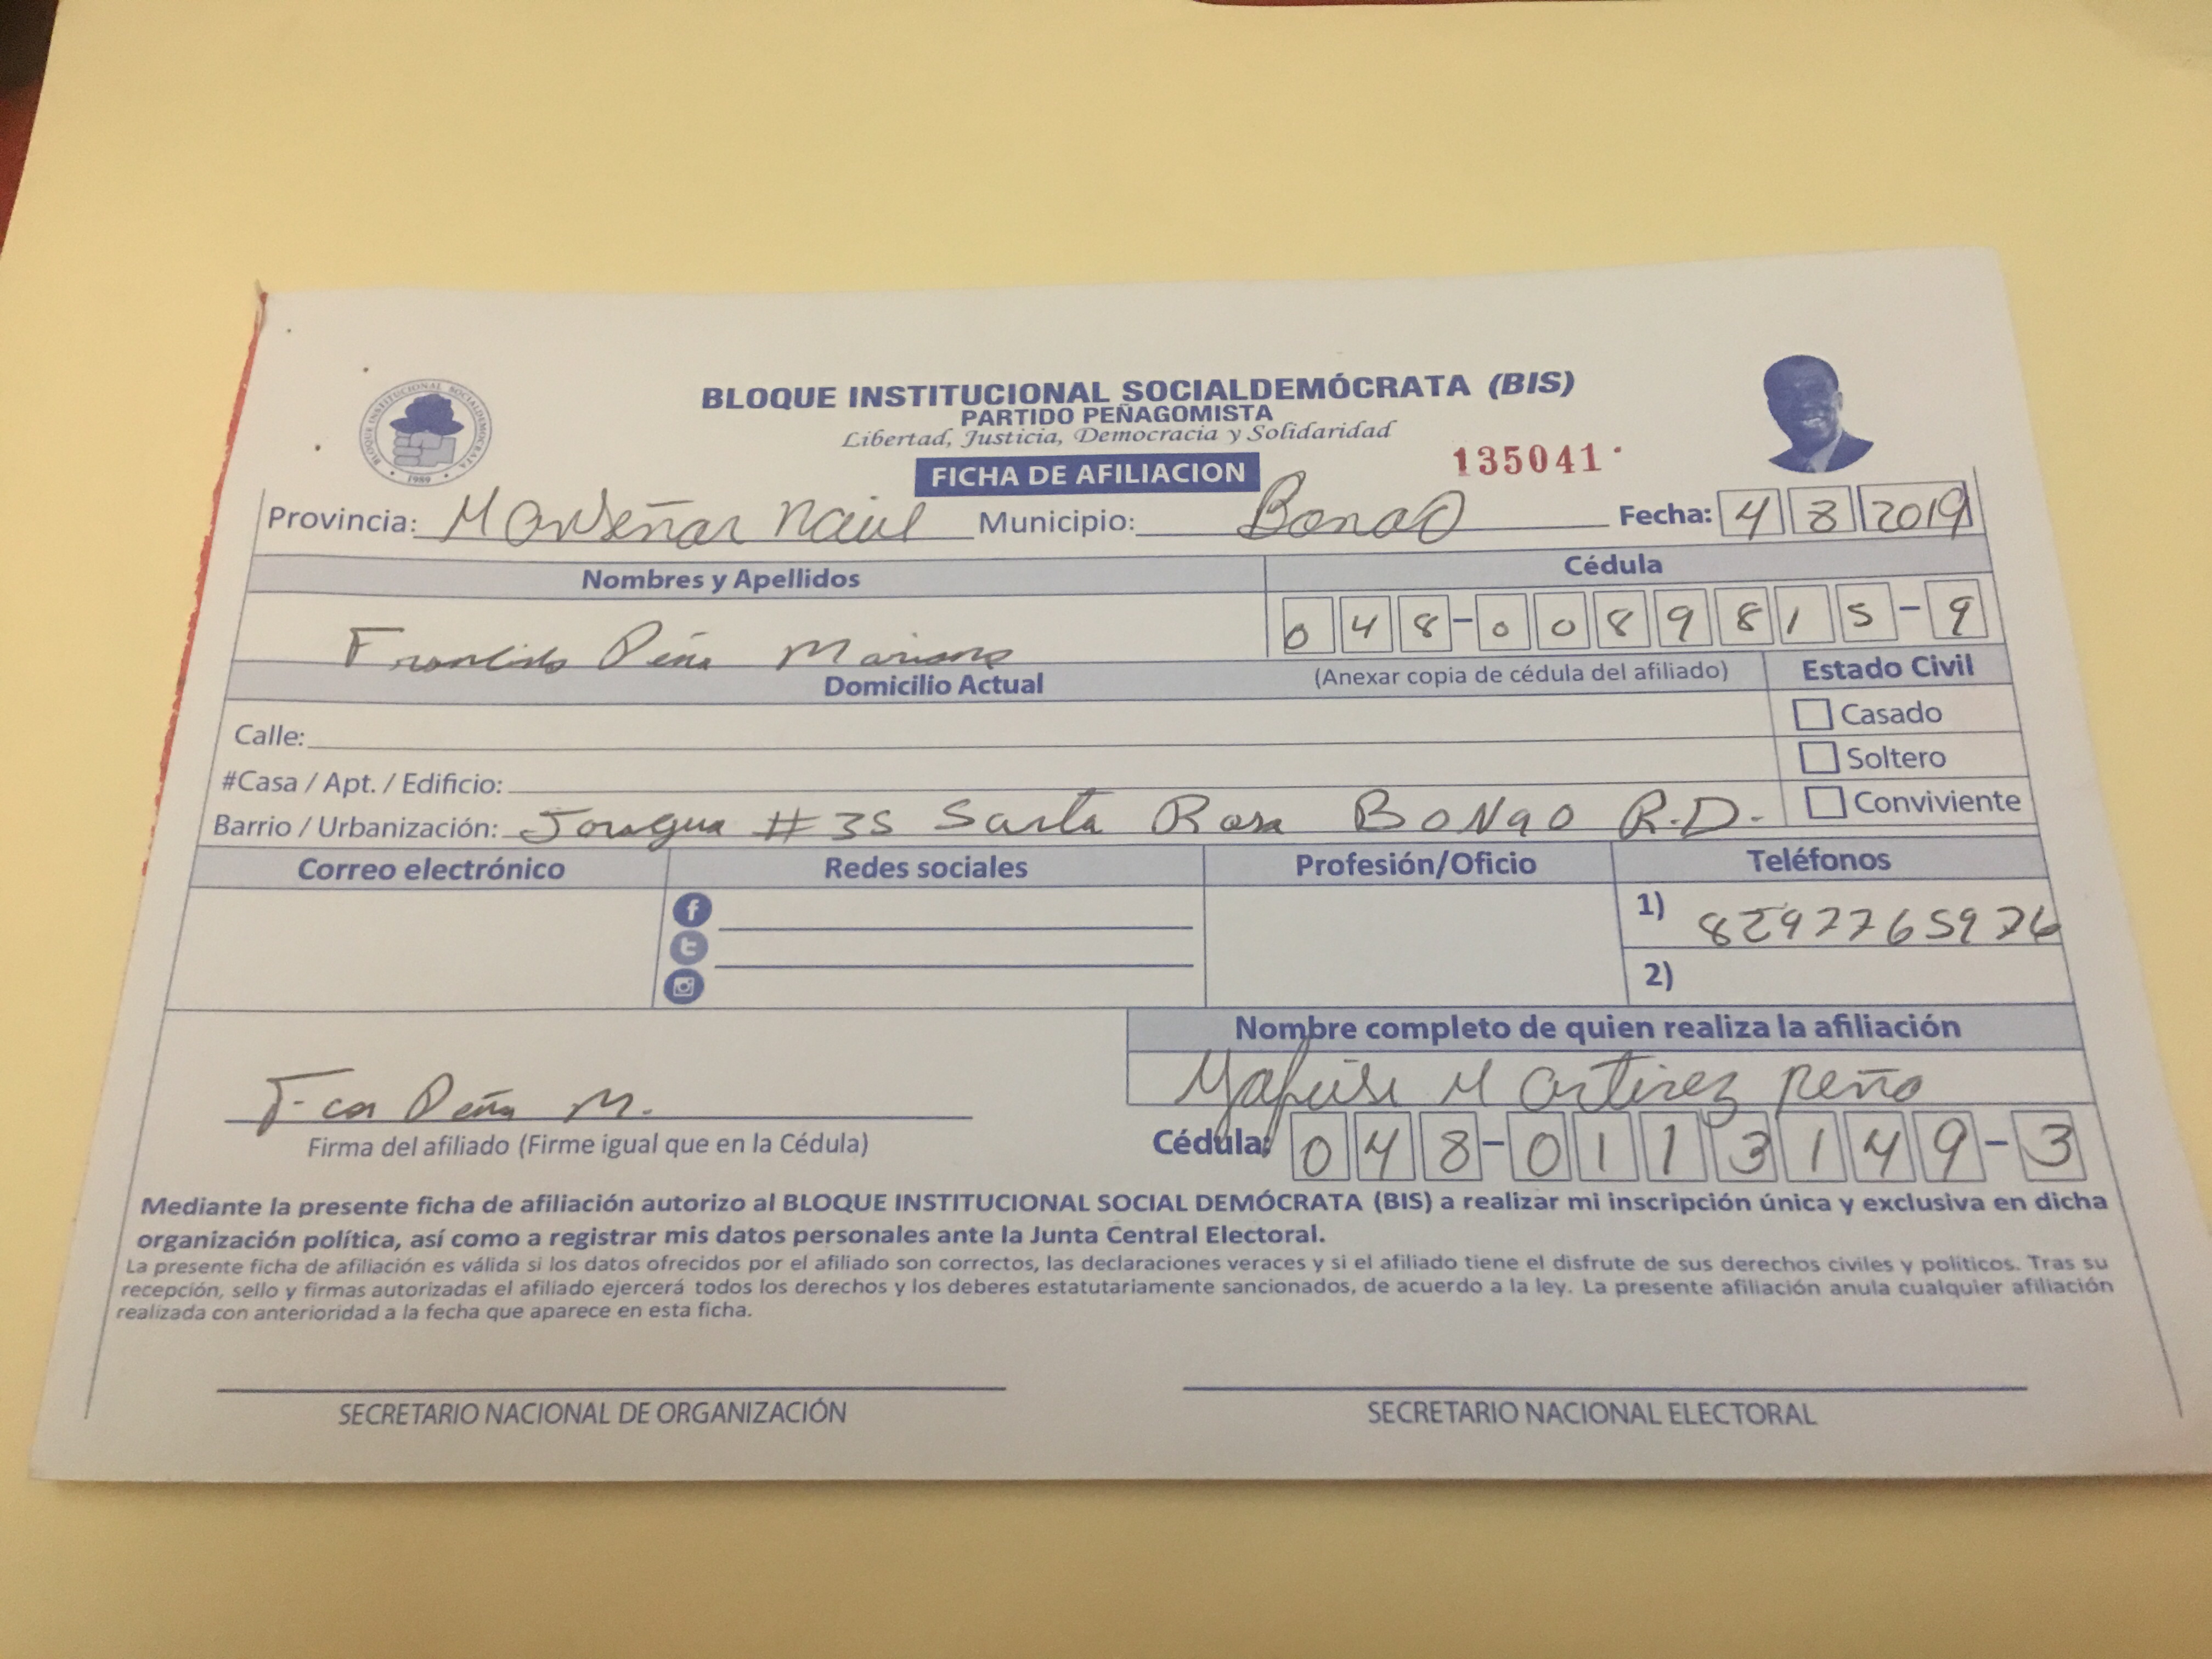 BLOQUE INSTITUCIONAL SOCIALDEMÓCRATA (BIS)
PARTIDO PEÑAGOMISTA
Libertad, Justicia, Democracia y Solidaridad
BLOQUE INSTITUCIONAL SOCIALDEMOCRATA
1989
FICHA DE AFILIACION
135041
Provincia: Monseñor Nouel Municipio: Bonao Fecha: 4 8 2019
Nombres y Apellidos Cédula
Francisco Peña Mariano 048-0089815-9
Domicilio Actual (Anexar copia de cédula del afiliado) Estado Civil
Calle: Casado
#Casa / Apt. / Edificio: Soltero
Barrio / Urbanización: #35 Santa Rosa BONAO R.D. Conviviente
Correo electrónico Redes sociales Profesión/Oficio Teléfonos
1) 8297765976
2)
Nombre completo de quien realiza la afiliación
Martinez Peña
Fco Peña M.
Firma del afiliado (Firme igual que en la Cédula) Cédula: 048-0113149-3
Mediante la presente ficha de afiliación autorizo al BLOQUE INSTITUCIONAL SOCIAL DEMÓCRATA (BIS) a realizar mi inscripción única y exclusiva en dicha
organización política, así como a registrar mis datos personales ante la Junta Central Electoral.
La presente ficha de afiliación es válida si los datos ofrecidos por el afiliado son correctos, las declaraciones veraces y si el afiliado tiene el disfrute de sus derechos civiles y políticos. Tras su
recepción, sello y firmas autorizadas el afiliado ejercerá todos los derechos y los deberes estatutariamente sancionados, de acuerdo a la ley. La presente afiliación anula cualquier afiliación
realizada con anterioridad a la fecha que aparece en esta ficha.
SECRETARIO NACIONAL DE ORGANIZACIÓN SECRETARIO NACIONAL ELECTORAL